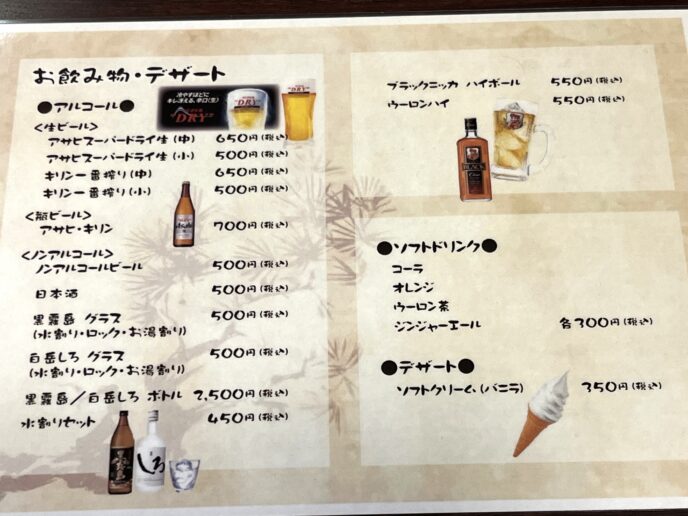 お飲み物・デザート
●アルコール●
冷やすほどに
キレ冴える、辛口〈生〉
DRY
<生ビール>
アサヒスーパードライ生(中) 650円(税込)
アサヒスーパードライ生(小) 500円(税込)
キリン一番搾り(中) 650円(税込)
キリン一番搾り(小) 500円(税込)
<瓶ビール>
アサヒ・キリン 700円(税込)
<ノンアルコール>
ノンアルコールビール 500円(税込)
日本酒 500円(税込)
黒霧島 グラス 500円(税込)
(水割り・ロック・お湯割り)
白岳しろ グラス 500円(税込)
(水割り・ロック・お湯割り)
黒霧島/白岳しろ ボトル 2,500円(税込)
水割りセット 450円(税込)
しろ
ブラックニッカ ハイボール 550円(税込)
ウーロンハイ 550円(税込)
BLACK
●ソフトドリンク●
コーラ
オレンジ
ウーロン茶
ジンジャーエール 各300円(税込)
●デザート●
ソフトクリーム(バニラ) 350円(税込)